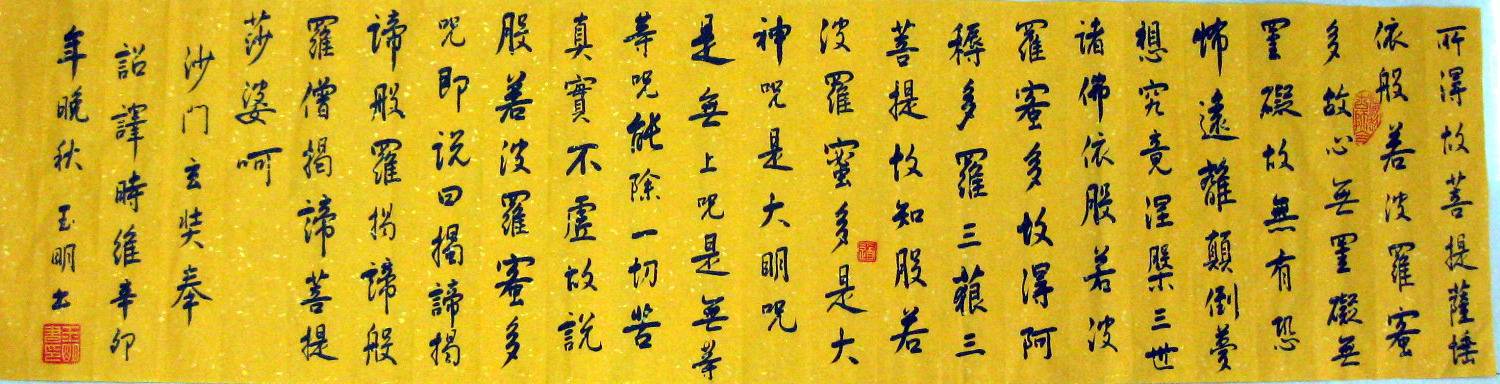 所得故菩提薩埵
依般若波羅蜜
多故心無罣礙無
罣礙故無有恐
怖遠離顛倒夢
想究竟涅槃三世
諸佛依般若波
羅蜜多故得阿
耨多羅三藐三
菩提故知般若
波羅蜜多是大
神咒是大明咒
是無上咒是無等
等咒能除一切苦
真實不虛故說
般若波羅蜜多
咒即說曰揭諦揭
諦般羅揭諦般
羅僧揭諦菩提
莎婆呵
沙门玄奘奉
詔譯時維辛卯
年晚秋 玉明书